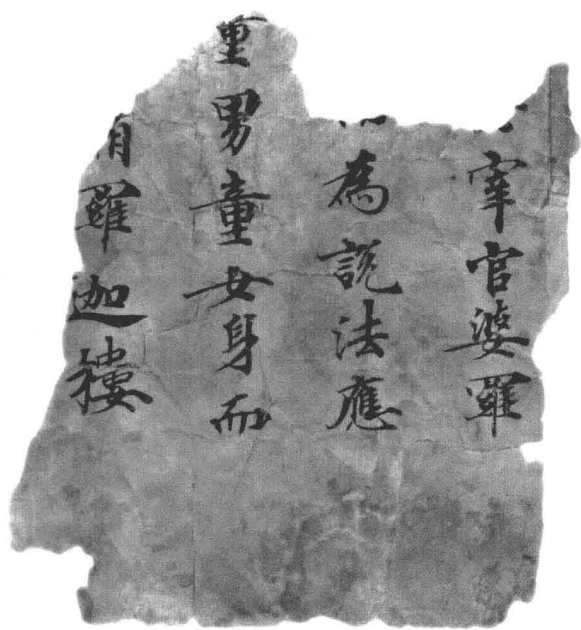 宰官婆羅
為説法應
童男童女身而
羅迦樓